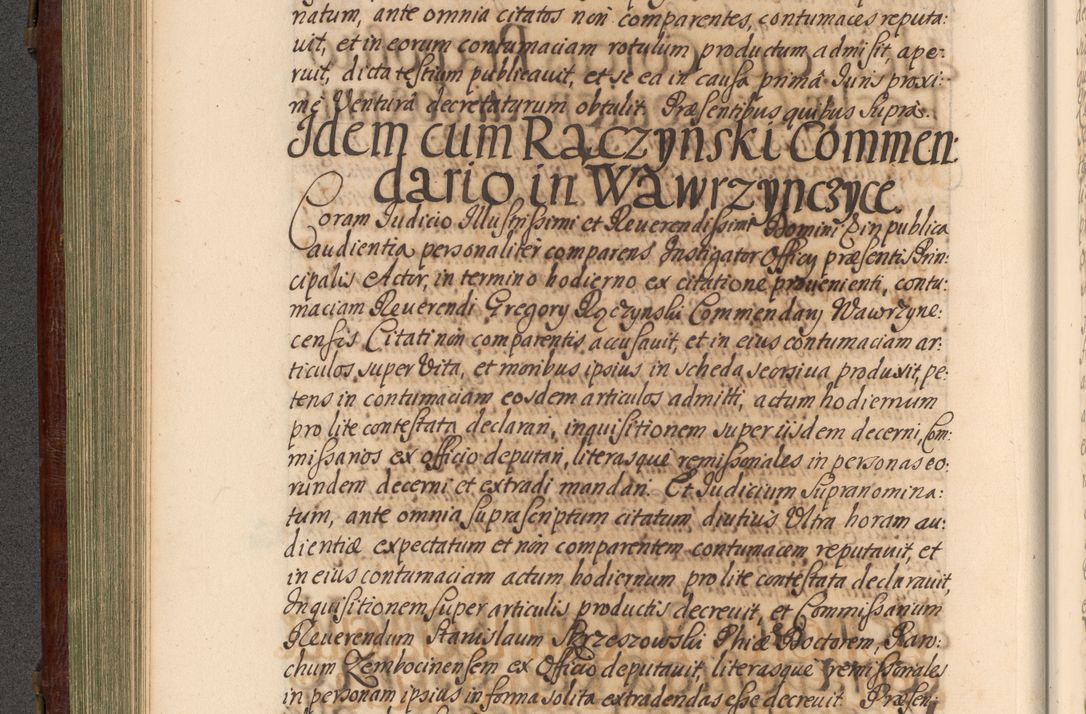 natum, ante omnia citatos non comparentes, contumaces reputa:
uit, et in eorum contumaciam rotulum productum admisit, ape:
ruit, dicta testium publicauit, et se ea in causa prima Iuris proxi:
mè Ventura decretaturum obtulit. Præsentibus quibus supra.
Idem cum Rączyński Commen:
dario in Wawrzynczyce.
Coram Iudicio Illustrissimi et Reuerendissimi Domini E in publica
audientia personaliter comparens Instigator Officij præsentis Prin:
cipalis Actor, in termino hodierno ex citatione prouenienti, contu:
maciam Reuerendi Gregorij Rączynski Commendarij Wawrzyne:
censis Citati non comparentis accusauit, et in eius contumaciam ar:
ticulos super Vita, et moribus ipsius in scheda seorsiua produxit, pe:
tens in contumaciam eosdem articulos admitti, actum hodiernum
pro lite contestata declarari, inquisitionem super iisdem decerni, Com:
missarios ex officio deputari, literasque remissoriales in personas eo:
rundem decerni et extradi mandari. Et Iudicium supranomina:
tum, ante omnia suprascriptum citatum diutius Vltra horam au:
dientiæ expectatum et non comparentem contumacem reputauit, et
in eius contumaciam actum hodiernum pro lite contestata declarauit,
Inquisitionem super articulis productis decreuit, et Commissarium
Reuerendum Stanislaum Skrzeszowski Phiæ Doctorem, Paro:
chum Zembocinensem ex Officio deputauit, literasque remissoriales
in personam ipsius in forma solita extradendas esse decreuit. Præsen: